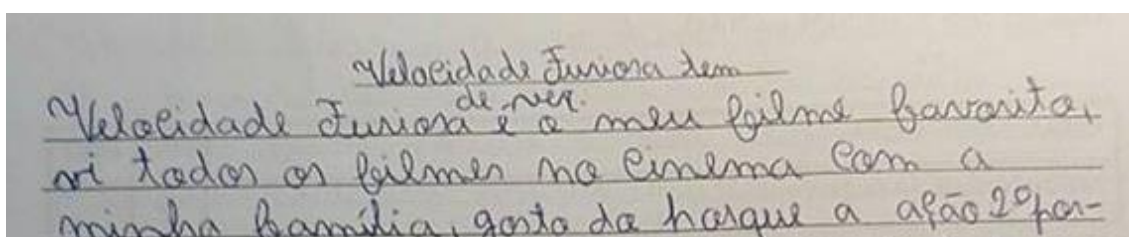 Velocidade Furiosa tem
de ver.
Velocidade Furiosa é o meu filme favorito,
vi todos os filmes no cinema com a
minha família, gosto da porque a ação 2º por-